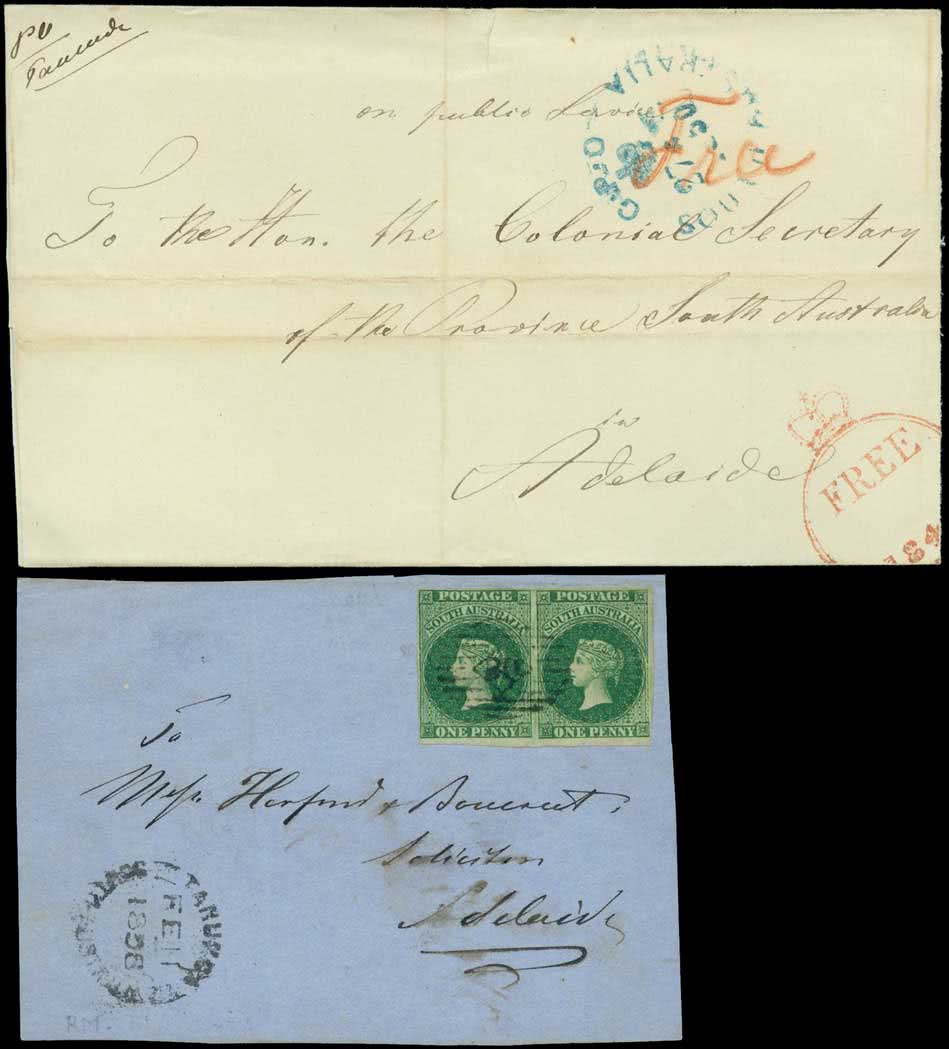 Tanunda
on public Service
Fra
G.P.O
SOUTH AUSTRALIA
To the Hon. the Colonial Secretary
of the Province South Australia
in
Adelaide
FREE
184
POSTAGE POSTAGE
SOUTH AUSTRALIA SOUTH AUSTRALIA
ONE PENNY ONE PENNY
To
Messrs
Solicitors
Adelaide
TANUNDA
FE
1858
SOUTH AUSTRALIA